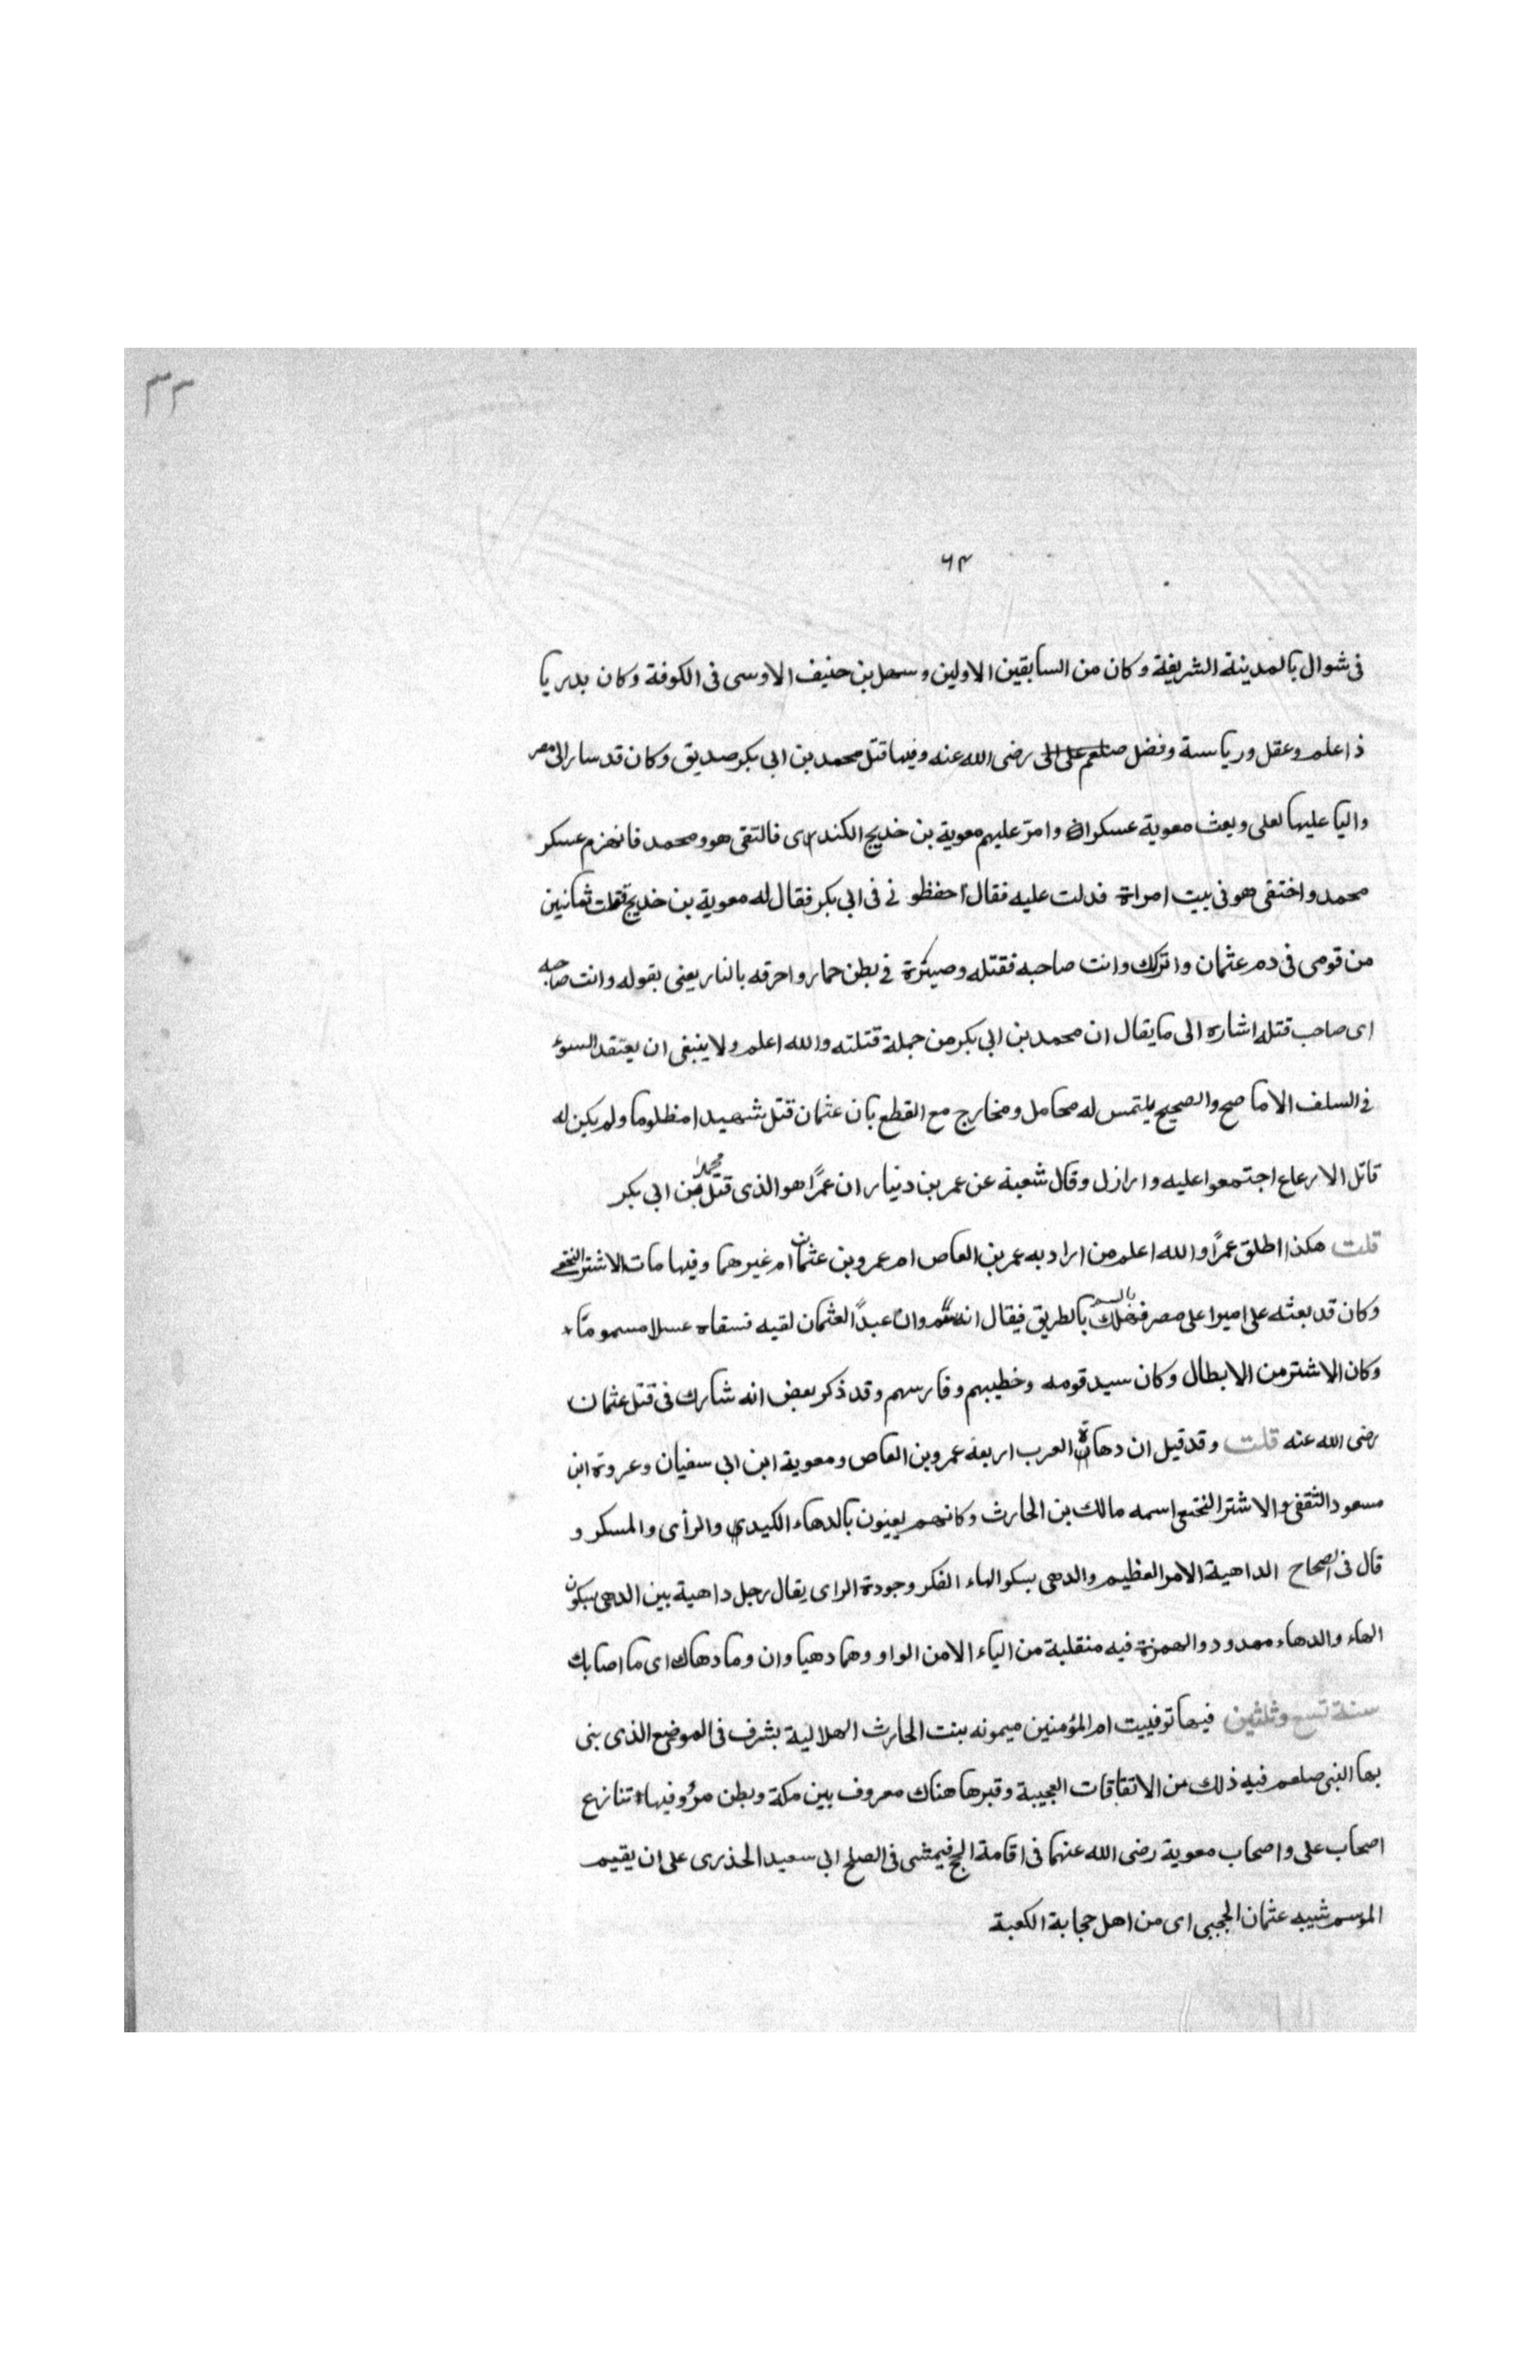 ٣٢
٦٣
فى شوال بالمدينة الشريفة وكان من السابقين الاولين وسهل بن حنيف الاوسى فى الكوفة وكان بدريا
ذا علم وعقل ورياسة وفضل صلعم على رضى الله عنه وفيها قتل محمد بن ابى بكر صديق وكان قد سار الى مصر
واليا عليها لعلى وبعث معوية عسكرا وامر عليهم معوية بن خديج الكندى فالتقى هو ومحمد فانهزم عسكر
محمد واختفى هو فى بيت امراة فدلت عليه فقال احفظو نى فى ابى بكر فقال له معوية بن خديج قتلت ثمانين
من قومى فى دم عثمان واتركك وانت صاحبه فقتله وصيره فى بطن حمار واحرقه بالنار يعنى بقوله وانت صاحبه
اى صاحب قتله اشاره الى ما يقال ان محمد بن ابى بكر من جملة قتلته والله اعلم ولا ينبغى ان يعتقد السوء
فى السلف الا ما صح والصحيح يلتمس له محامل ومخارج مع القطع بان عثمان قتل شهيدا مظلوما ولم يكن له
قاتل الا رعاع اجتمعوا عليه وارازل وقال شعبة عن عمر بن دنيار ان عمرًا هو الذى قتل محمد بن ابى بكر
قلت هكذا اطلق عمرًا والله اعلم من اراد به عمر بن العاص ام عمرو بن عثمان ام غيرهما وفيها مات الاشتر النخعى
وكان قد بعثه على اميرا على مصر فهلك بالسم بالطريق فيقال انه سم وان عبدًا لعثمان لقيه فسقاه عسلا مسموما
وكان الاشتر من الابطال وكان سيد قومه وخطيبهم وفارسهم وقد ذكر بعض انه شارك فى قتل عثمان
رضى الله عنه قلت وقد قيل ان دهاة العرب اربعة عمرو بن العاص ومعوية ابن ابى سفيان وعروة ابن
مسعود الثقفى والاشتر النخعى اسمه مالك بن الحارث وكانهم يعنون بالدهاء الكيدى والرأى والمسكر و
قال فى الصحاح الداهية الامر العظيم والدهى بسكو الهاء الفكر وجودة الراى يقال رجل داهية بين الدهى بسكون
الهاء والدهاء ممدود والهمزة فيه منقلبة من الياء لا من الواو وهما دهيا وان وما دهاك اى ما اصابك
سنة تسع وثلثين فيها توفييت ام المؤمنين ميمونه بنت الحارث الهلالية بشرف فى الموضع الذى بنى
بها النبى صلعم فيه ذلك من الاتقاقات العجيبة وقبرها هناك معروف بين مكة وبطن مرو وفيها تنازع
اصحاب على واصحاب معوية رضى الله عنهما فى اقامة الحج فيمشى فى الصلح ابى سعيد الخذرى على ان يقيم
الموسم شيبه عثمان الحجبى اى من اهل حجابة الكعبة